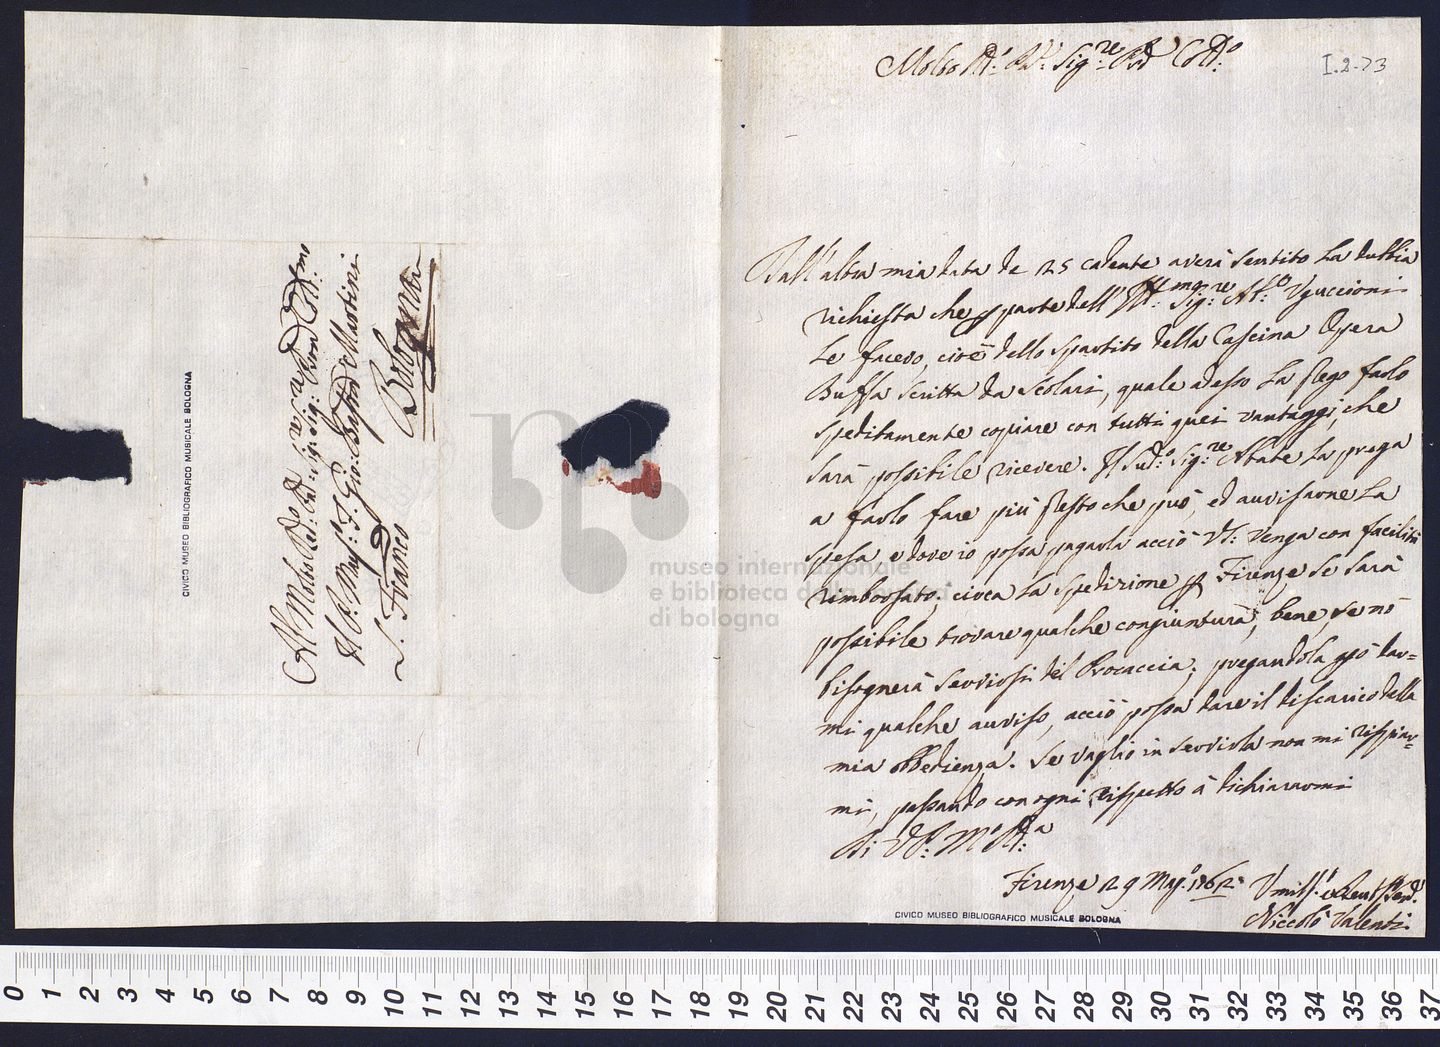 Molto Rd.º Rd.º Sig.re Prõn Coll.mo
I.2.73
Dall'altra mia data de 25 cadente averà sentito la dubbia
richiesta che p parte dell' Ill.mo Sig.re Ab.e Uguccioni
Le facevo, cioè dello spartito della Cascina Opera
Buffa scritta da Scolari, quale adesso La prego farlo
speditamente copiare con tutti quei vantaggi, che
sarà possibile ricevere. Il Sud.º Sig.re Abate La prega
a farlo fare più presto che può, ed avvisarne La
spesa, e dove io possa pagarla acciò VS: venga con facilità
rimborsato; circa La spedizione p Firenze se sarà
possibile trovare qualche congiuntura, bene, se nò
bisognerà servirsi del Procaccia; pregandola però dar=
mi qualche avviso, acciò possa dare il discarico della
mia obbedienza. Se vaglio in servirla non mi rispiar=
mi, passando con ogni rispetto à dichiararmi
Di VS: M.º Rd.a
Firenze 29 Mag.º 1762
Niccolò Valenti
Al Molto Red.º Pad.re Sig.re Sig.r Prõn Coll.mo
Il P. Mas.º F. Gio: Bat̃ta Martini
S. Franco
Bologna
CIVICO MUSEO BIBLIOGRAFICO MUSICALE BOLOGNA
CIVICO MUSEO BIBLIOGRAFICO MUSICALE BOLOGNA
museo internazionale
e biblioteca della musica
di bologna
0 1 2 3 4 5 6 7 8 9 10 11 12 13 14 15 16 17 18 19 20 21 22 23 24 25 26 27 28 29 30 31 32 33 34 35 36 37